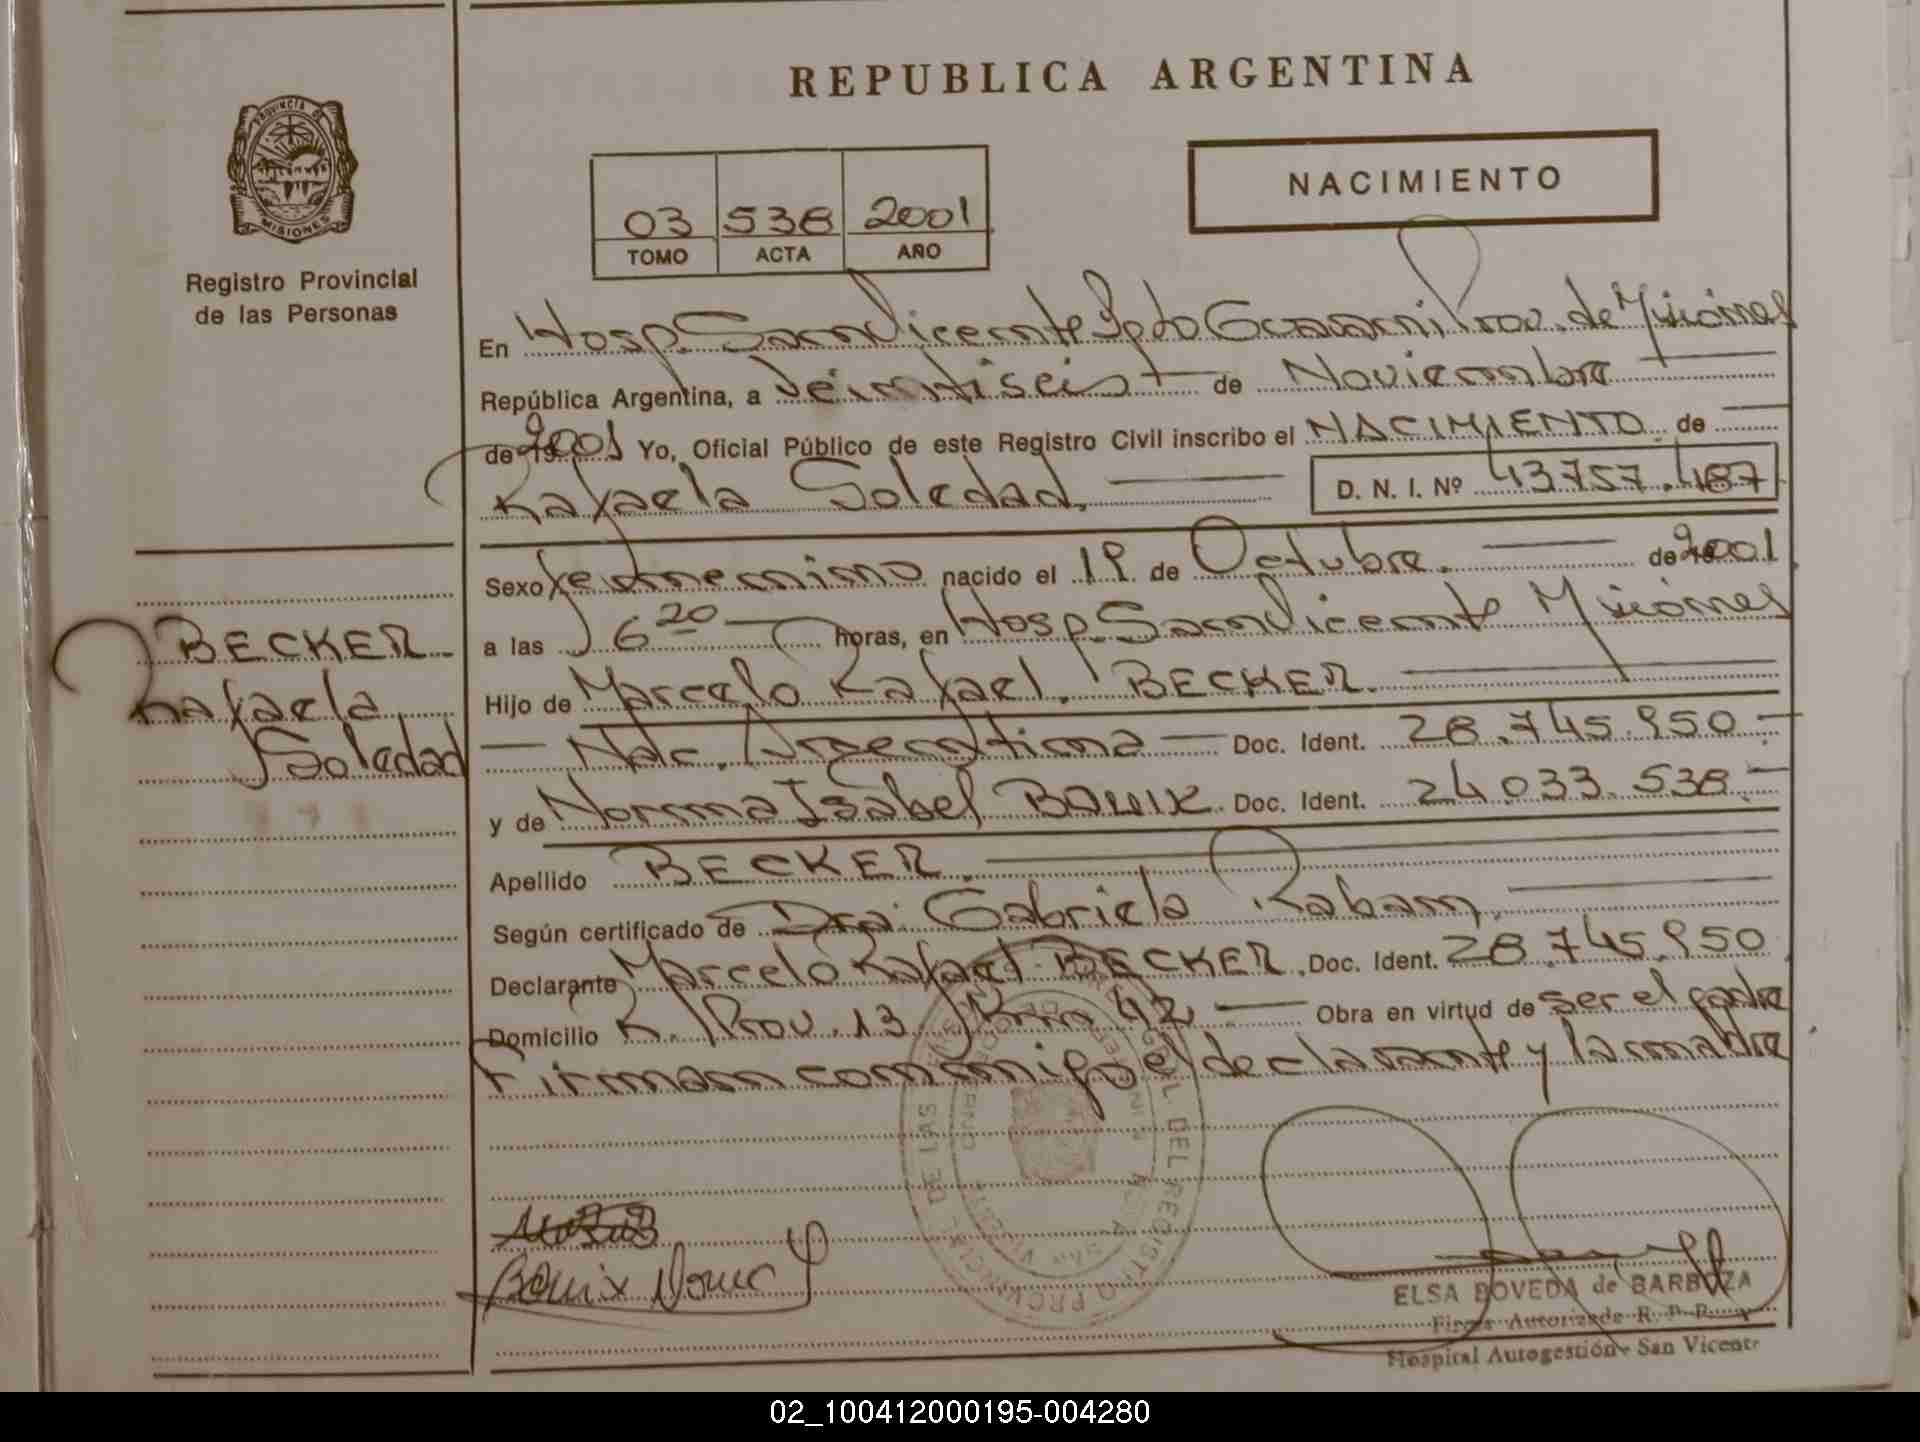 REPUBLICA ARGENTINA
PROVINCIA DE
MISIONES
Registro Provincial
de las Personas
03 538 2001
TOMO ACTA AÑO
NACIMIENTO
En Hosp. San Vicente Dpto Guaraní Prov. de Misiones
República Argentina, a Veintiseis de Noviembre
de 2001 Yo, Oficial Público de este Registro Civil inscribo el NACIMIENTO de
Rafaela Soledad. D. N. I. Nº 43757.487
Sexo femenino nacido el 19 de Octubre. de 2001
a las 6 20 horas, en Hosp. San Vicente Misiones
Hijo de Marcelo Rafael. BECKER.
Nac. Argentina Doc. Ident. 28.745.950
y de Norma Isabel Doc. Ident. 24.033.538
Apellido BECKER.
Según certificado de Dra. Gabriela
Declarante Marcelo Rafael BECKER. Doc. Ident. 28.745.950
Domicilio R. Prov. 13 Km 42 Obra en virtud de ser el padre
Firman conmigo el declarante y la madre
BECKER
Rafaela
Soledad
ELSA BOVEDA de BARBOZA
Firma Autorizada R. P. P.
Hospital Autogestión - San Vicente
02_100412000195-004280